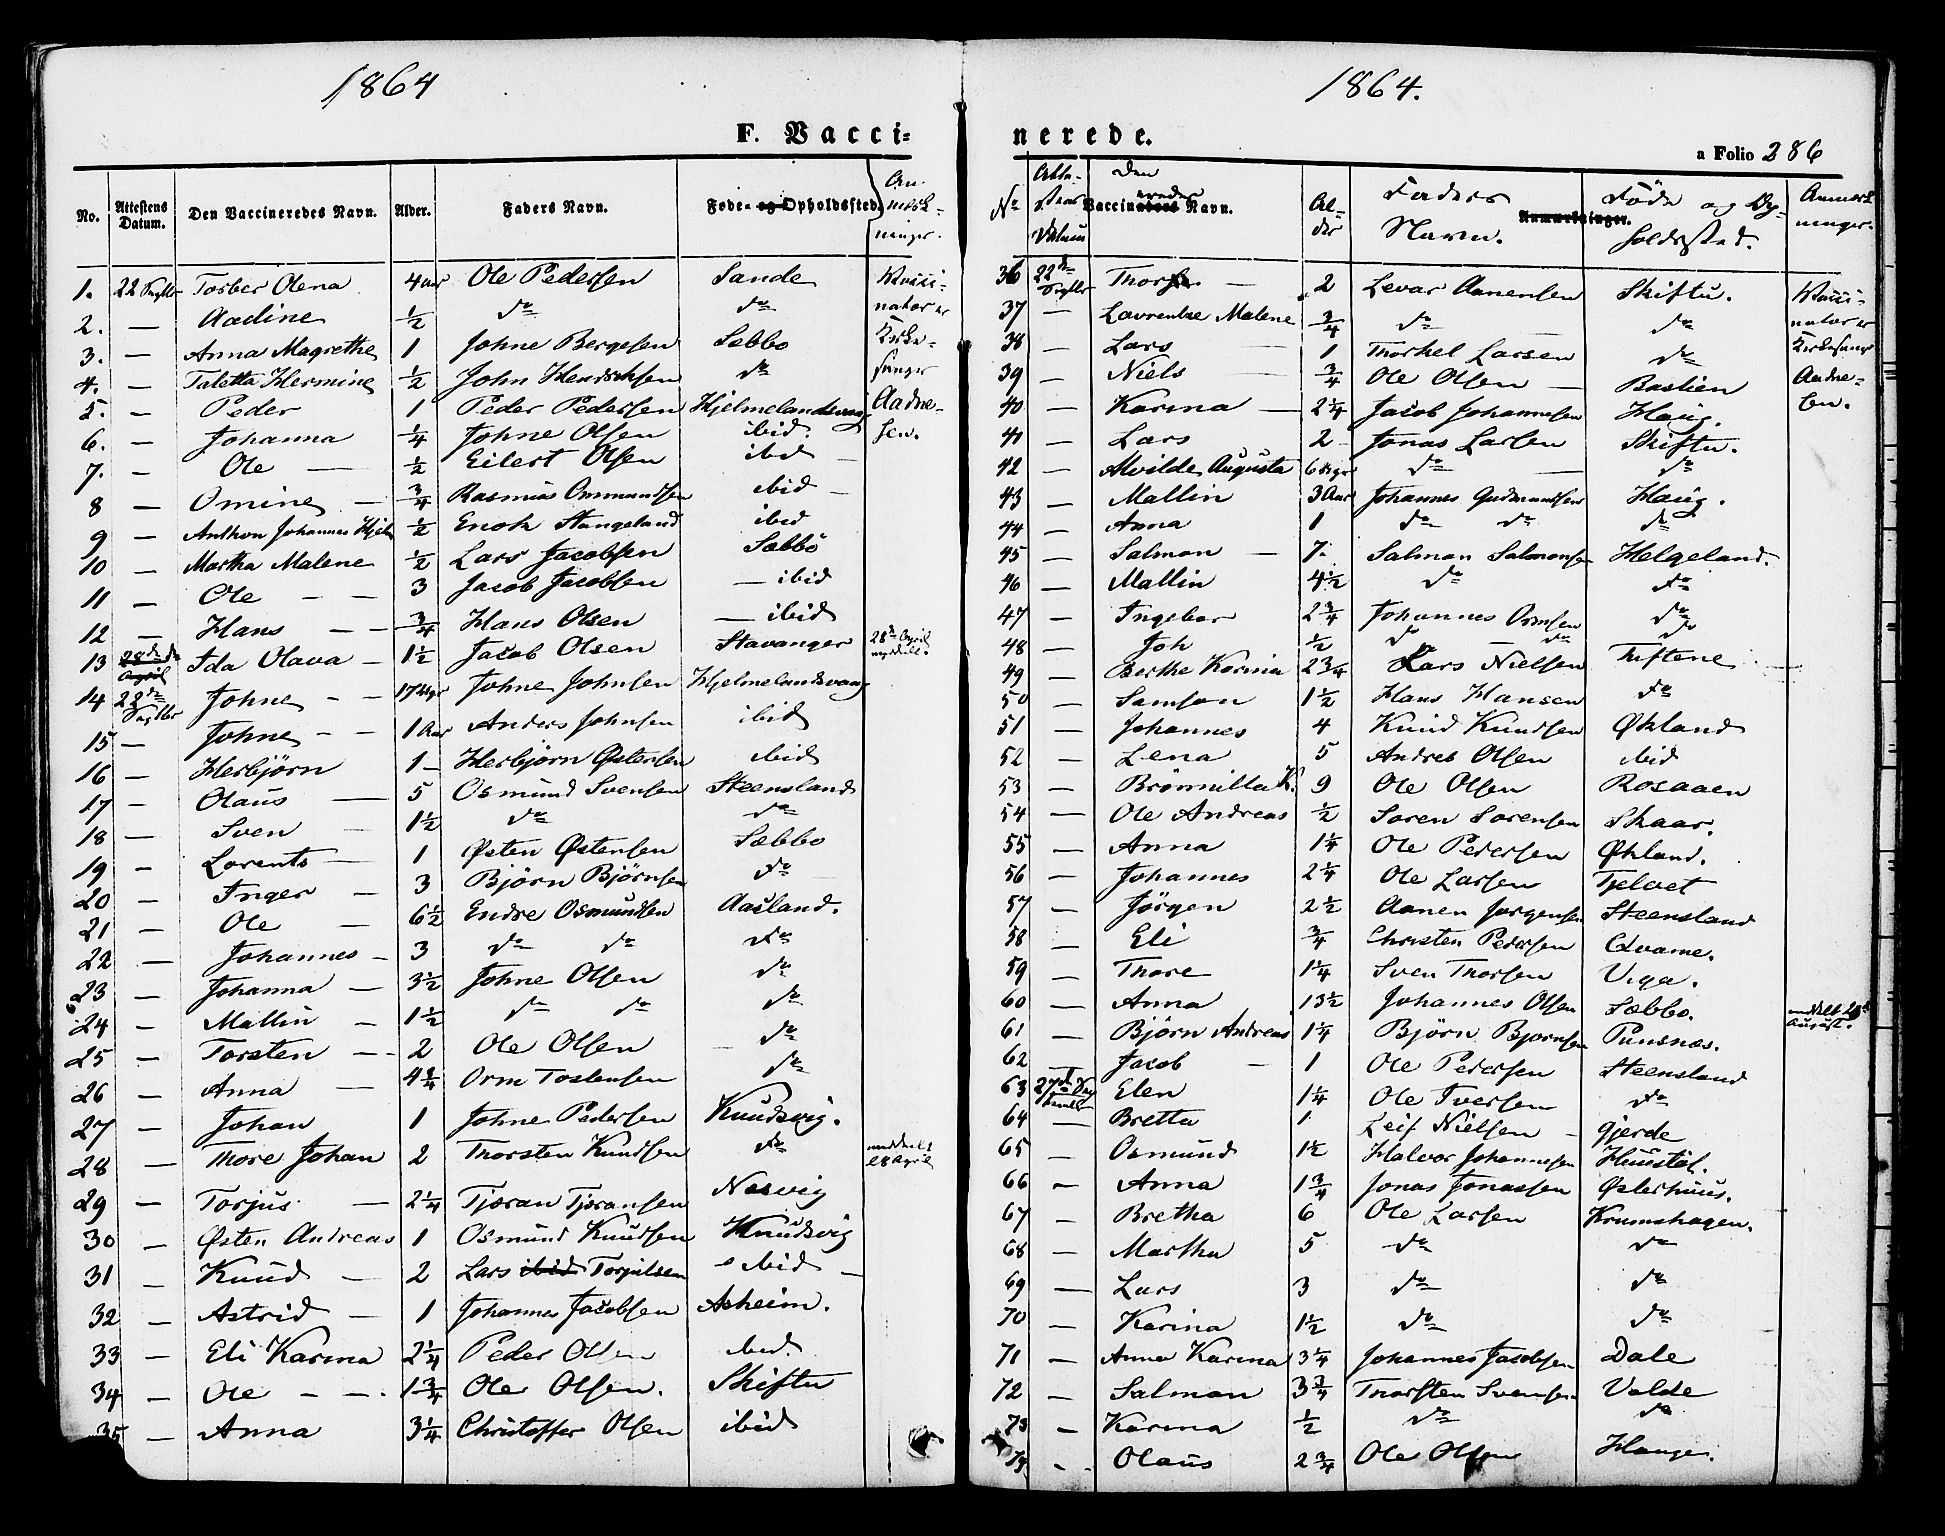 1864
F. Vacci-
No. Attestens Datum. Den Vaccineredes Navn. Alder. Faders Navn. Føde- og Opholdssted. An-mærk-ninger.
1. 22 Septbr Torber Olena 4 aar Ole Pedersen Sande Vacci-
2. — Aadine ½ do do nator er
3. — Anna Magrethe 1 Johne Bergesen Sæbbø Kirke-
4. — Taletta Hermine ½ John Hendrichsen do sanger
5. — Peder 1 Peder Pedersen Hjelmelandsvaag Aadne-
6. — Johanna ¼ Johne Olsen ibid. sen.
7. — Ole — ½ Eilert Olsen ibid —
8 — Omine — ¾ Rasmus Ommundsen ibid —
9 — Anthon Johannes Hjelm ½ Enok Stangeland ibid
10 — Martha Malene ½ Lars Jacobsen Sæbbø
11 — Ole — — 3 Jacob Jacobsen — ibid
12 — Hans — — ¾ Hans Olsen — ibid
13 28de April Ida Olava — 1½ Jacob Olsen Stavanger 28de April
14 22de Septbr Johne — — 17 Uger Johne Johnsen Hjelmelandsvaag
15 — Johne — — 1 Aar Anders Johnsen ibid
16 — Herbjørn 1 — Herbjørn Østensen ibid
17 — Olaus — 5 Osmund Svensen Steensland
18 — Sven — 1½ do do
19 — Lorents — 1 Østen Østensen Sæbbo
20 — Inger — 3 Bjørn Bjørnsen do
21 — Ole — 6½ Endre Osmundsen Aasland.
22 — Johannes — 3 do do do
23 — Johanna — 3½ Johne Olsen do
24 — Mallin — 1½ do do do
25 — Torsten — - 2 Ole Olsen do
26 — Anna — 4¾ Orm Tostensen do
27 — Johan 1 Johne Pedersen Knudsvig.
28 — Thore Johan 2 Thorsten Knudsen do meddelt 28 April
29 — Torjus — 2¼ Tjøran Tjøransen Nesvig
30 — Østen Andreas 1 Osmund Knudsen Knudsvig
31 — Knud — 2 Lars ibid Torjulsen ibid —
32 — Astrid — 1 Johannes Jacobsen Asheim.
33 — Eli Karina 2¼ Peder Olsen ibid.
34 — Ole — — . 1¾ Ole Olsen. Skiftu
35 — Anna 3¼ Christoffer Olsen ibid
1864.
nerede.
a Folio 286
No Atte-stens Datum Den Vaccineredes Navn. Al-der Faders Navn. Anmærkninger. Føde og Op-holdssted. Anmærk-ninger.
36 22de Septbr — 2 Levar Aanensen Skiftu. Vacci-
37 — Lavrentse Malene ¾ do do nator er
38 — Lars 1 Thorkel Larsen do Kirkesang
39 — Niels ¾ Ole Olsen — Bastien Aadne-
40 — Karina — 2¼ Jacob Johannesen Haug. sen.
41 — Lars 2 Jonas Larsen Skiftu.
42 — Alvilde Augusta 6 Uger do — do
43 — Mallin 3 Aar Johannes Gudmundsen Haug.
44 — Anna 1 do do do
45 — Salmon — 7. Salmon Salmonsen Helgeland.
46 — Mallin 4½ do do
47 — Ingebor 2¾ Johannes Ormsen do
48 — Joh ½ do do do
49 — Berthe Karina 2¾ Lars Nielsen Tuftene
50 — Samson 1½ Hans Hansen do
51 — Johannes 4 Knud Knudsen Økland
52 — Lena 5 Andres Olsen ibid
53 — Brønnilla K. 9 Ole Olsen Rosaaen
54 — Ole Andreas ½ Søren Sørensen Skaar.
55 — Anna 1¼ Ole Pedersen Økland.
56 — Johannes 2¼ Ole Larsen Tjelvet
57 — Jørgen 2½ Aanen Jørgensen Steensland
58 — Eli ¾ Christen Pedersen Qvame.
59 — Thore 1¼ Sven Thorsen Viga.
60 — Anna 13½ Johannes Olsen Sæbbo.
61 — Bjørn Andreas 1¼ Bjørn Bjørnsen Punsnæs. August.
62 — Jacob — 1 Ole Pedersen Steensland
63 27de Elen 1¼ Ole Iversen do
64 — Bretta 1 Leif Nielsen — Gjerde
65 — Osmund 1½ Halvor Johannesen Huustøl.
66 — Anna 1¾ Jonas Jonassen Østerhuus.
67 — Bretha 6 Ole Larsen Krumshagen.
68 — Martha 5 do do
69 — Lars 3 do do
70 — Karina 1½ do do
71 — Anna Karina 3¼ Johannes Jacobsen Dale
72 — Salman 3¾ Thorsten Svensen Valde
73 — Karina ½ do do
74 - - Olaus 2¾ Ole Olsen Hauge.